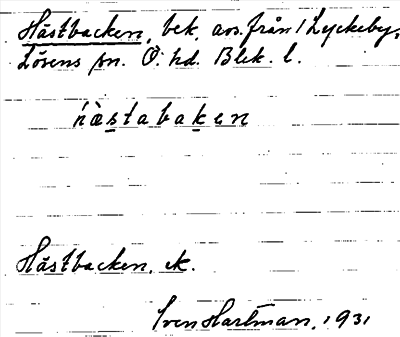 Hästbacken, bek. avs. från 1 Lyckeby,
Lösens sn. Ö. hd. Blek. l.
hästabaken
Hästbacken. ek.
Sven Hartman, 1931